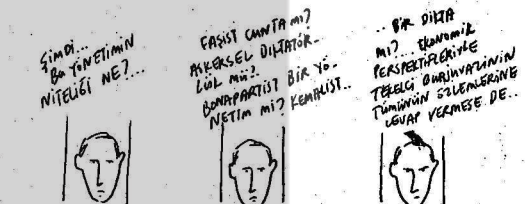 ŞİMDİ...
BU YÖNETİMİN
NİTELİĞİ NE?...
FAŞİST CUNTA MI?
ASKERSEL DİKTATÖR-
LÜK MÜ?
BONAPARTİST BİR YÖ-
NETİM Mİ? KEMALİST..
... BİR DİKTA
MI?... EKONOMİK
PERSPEKTİFLERİYLE
TEKELCİ BURJUVAZİNİN
TÜMÜNÜN ÖZLEMLERİNE
CEVAP VERMESE DE...